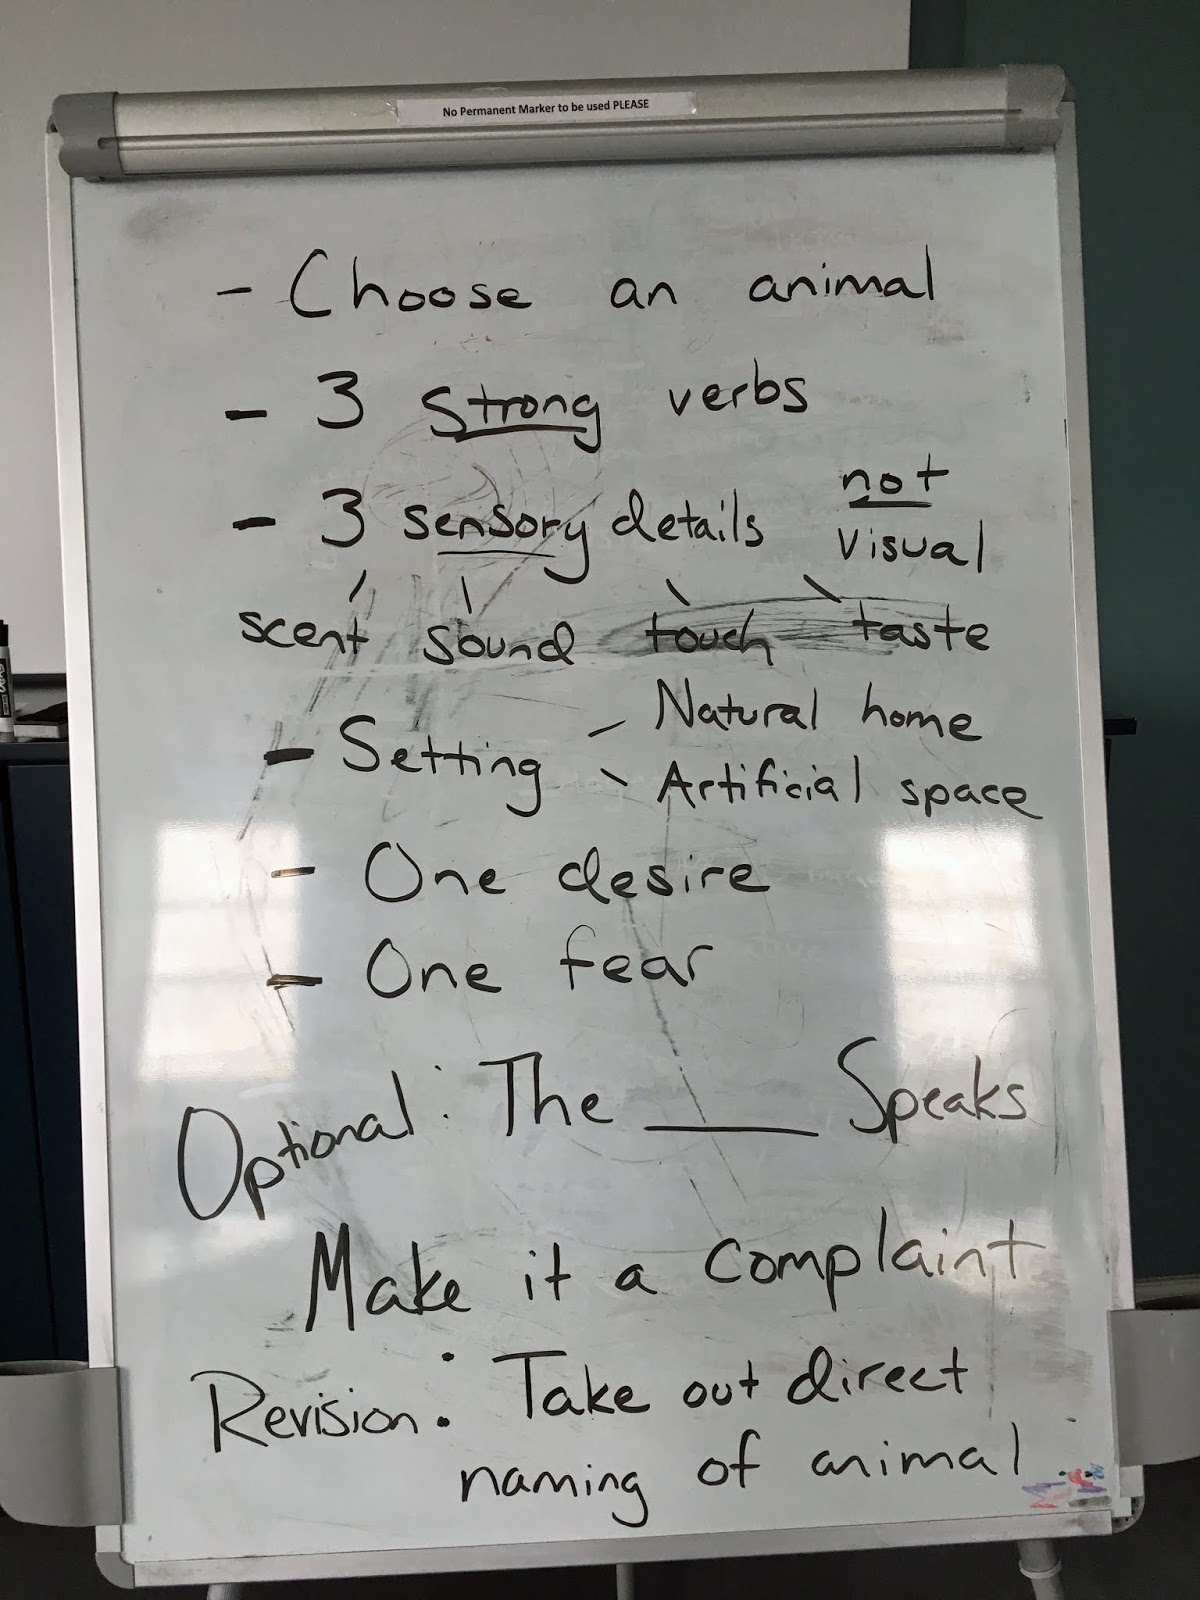 No Permanent Marker to be used PLEASE
- Choose an animal
- 3 strong verbs
- 3 sensory details not visual
scent sound touch taste
- Setting - Natural home
- Artificial space
- One desire
- One fear
Optional: The ____ Speaks
Make it a complaint
Revision: Take out direct
naming of animal